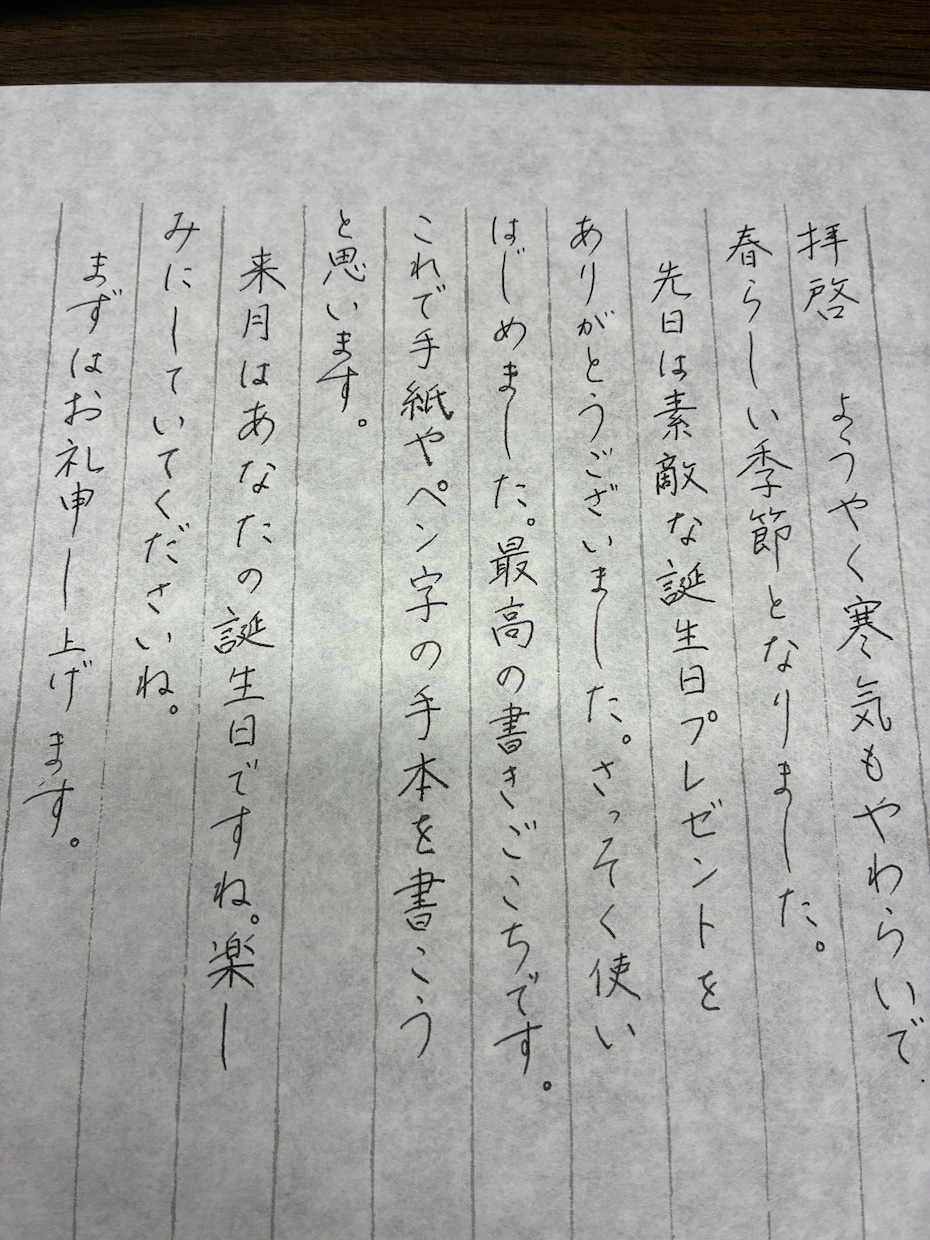 拝啓　ようやく寒気もやわらいで
春らしい季節となりました。
先日は素敵な誕生日プレゼントを
ありがとうございました。さっそく使い
はじめました。最高の書きごこちです。
これで手紙やペン字の手本を書こう
と思います。
来月はあなたの誕生日ですね。楽し
みにしていてくださいね。
まずはお礼申し上げます。